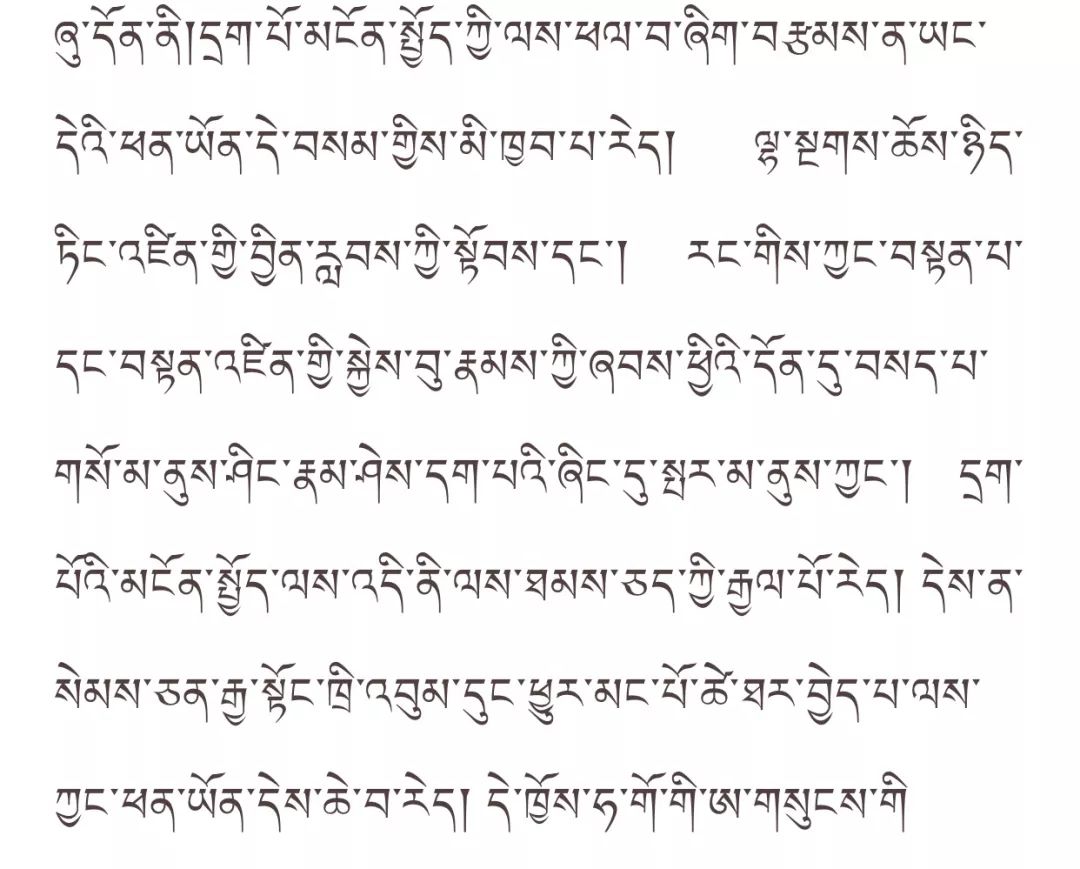 ཞུ་དོན་ནི།དྲག་པོ་མངོན་སྤྱོད་ཀྱི་ལས་ཕལ་བ་ཞིག་བརྩམས་ན་ཡང་
དེའི་ཕན་ཡོན་དེ་བསམ་གྱིས་མི་ཁྱབ་པ་རེད། ལྷ་སྔགས་ཆོས་ཉིད་
ཏིང་འཛིན་གྱི་བྱིན་རླབས་ཀྱི་སྟོབས་དང་། རང་གིས་ཀྱང་བསྟན་པ་
དང་བསྟན་འཛིན་གྱི་སྐྱེས་བུ་རྣམས་ཀྱི་ཞབས་ཕྱིའི་དོན་དུ་བསད་པ་
གསོ་མ་ནུས་ཤིང་རྣམ་ཤེས་དག་པའི་ཞིང་དུ་སྤར་མ་ནུས་ཀྱང་། དྲག་
པོའི་མངོན་སྤྱོད་ལས་འདི་ནི་ལས་ཐམས་ཅད་ཀྱི་རྒྱལ་པོ་རེད། དེས་ན་
སེམས་ཅན་རྒྱ་སྟོང་ཁྲི་འབུམ་དུང་ཕྱུར་མང་པོ་ཚེ་ཐར་བྱེད་པ་ལས་
ཀྱང་ཕན་ཡོན་དེས་ཆེ་བ་རེད། དེ་ཁྱོས་ཧ་གོ་གི་ཨ་གསུངས་གི